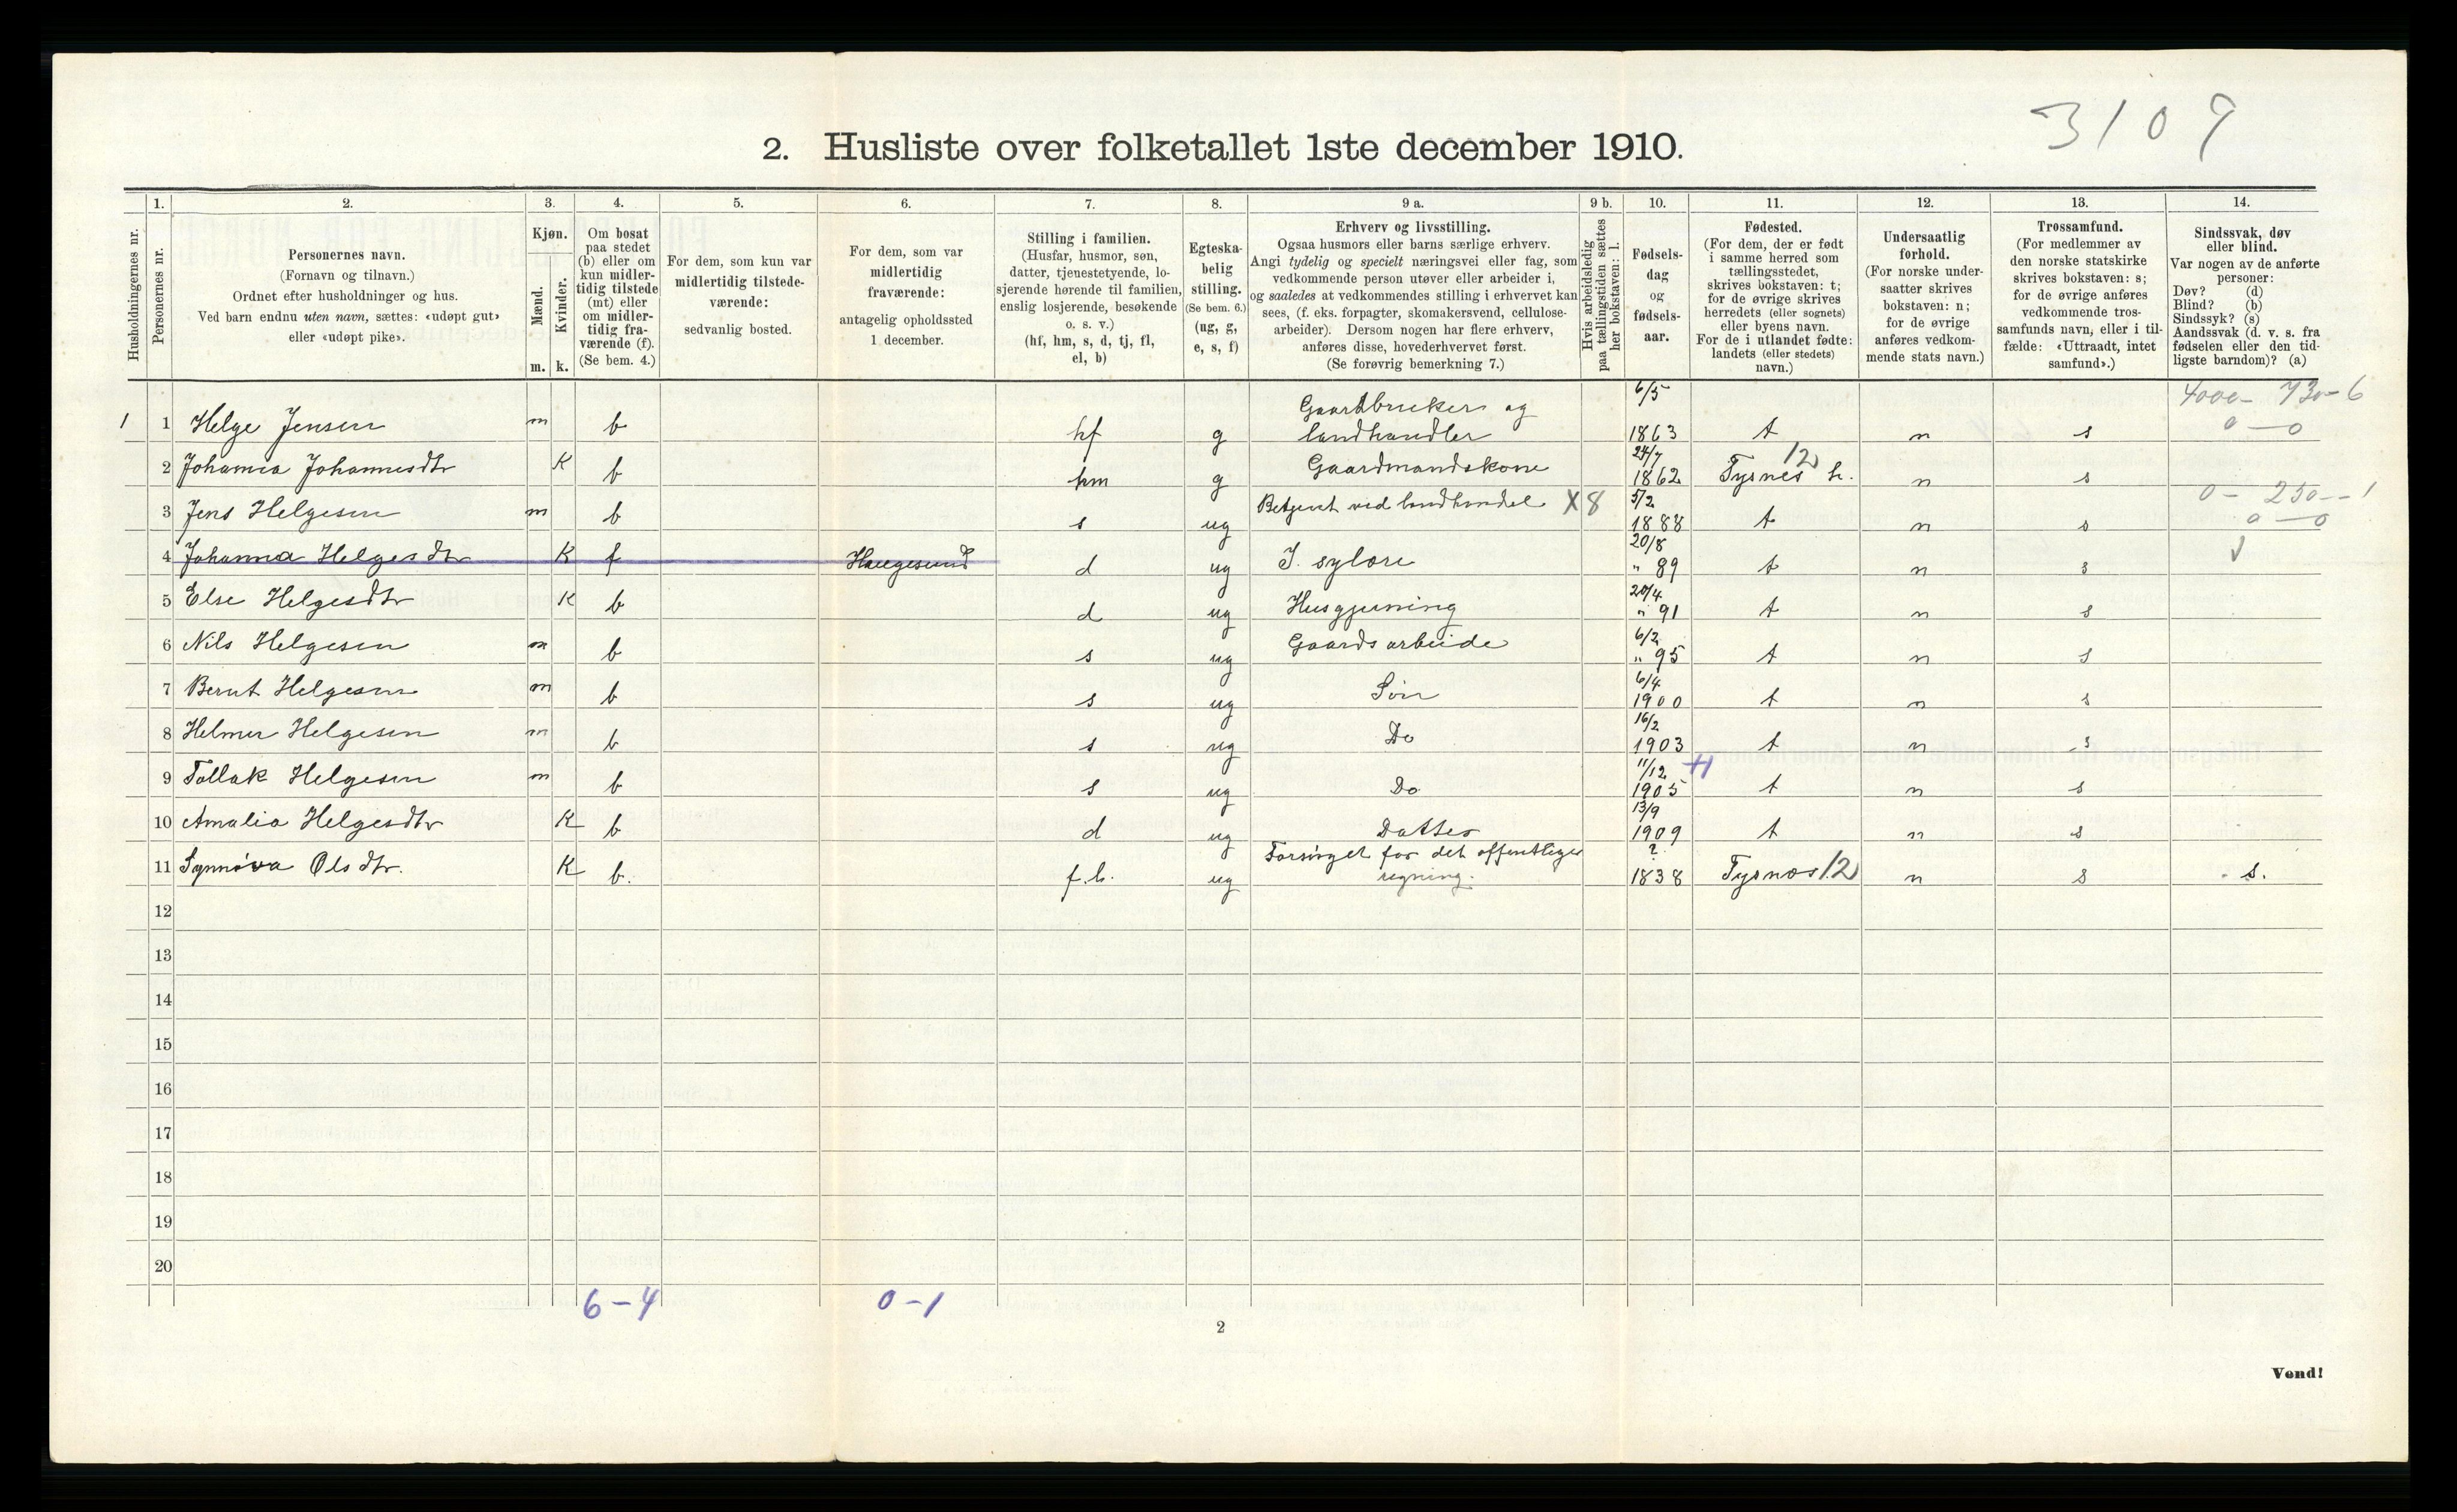 3109
2. Husliste over folketallet 1ste december 1910.
Husholdningernes nr.
1.
Personernes nr.
2.
Personernes navn.
(Fornavn og tilnavn.)
Ordnet efter husholdninger og hus.
Ved barn endnu uten navn, sættes: «udøpt gut»
eller «udøpt pike».
3.
Kjøn.
Mænd.
Kvinder.
m. k.
4.
Om bosat
paa stedet
(b) eller om
kun midler-
tidig tilstede
(mt) eller
om midler-
tidig fra-
værende (f).
(Se bem. 4.)
5.
For dem, som kun var
midlertidig tilstede-
værende:
sedvanlig bosted.
6.
For dem, som var
midlertidig
fraværende:
antagelig opholdssted
1 december.
7.
Stilling i familien.
(Husfar, husmor, søn,
datter, tjenestetyende, lo-
sjerende hørende til familien,
enslig losjerende, besøkende
o. s. v.)
(hf, hm, s, d, tj, fl,
el, b)
8.
Egteska-
belig
stilling.
(Se bem. 6.)
(ug, g,
e, s, f)
9 a.
Erhverv og livsstilling.
Ogsaa husmors eller barns særlige erhverv.
Angi tydelig og specielt næringsvei eller fag, som
vedkommende person utøver eller arbeider i,
og saaledes at vedkommendes stilling i erhvervet kan
sees, (f. eks. forpagter, skomakersvend, cellulose-
arbeider). Dersom nogen har flere erhverv,
anføres disse, hovederhvervet først.
(Se forøvrig bemerkning 7.)
9 b.
Hvis arbeidsledig
paa tællingstiden sættes
her bokstaven: l.
10.
Fødsels-
dag
og
fødsels-
aar.
11.
Fødested.
(For dem, der er født
i samme herred som
tællingsstedet,
skrives bokstaven: t;
for de øvrige skrives
herredets (eller sognets)
eller byens navn.
For de i utlandet fødte:
landets (eller stedets)
navn.)
12.
Undersaatlig
forhold.
(For norske under-
saatter skrives
bokstaven: n;
for de øvrige
anføres vedkom-
mende stats navn.)
13.
Trossamfund.
(For medlemmer av
den norske statskirke
skrives bokstaven: s;
for de øvrige anføres
vedkommende tros-
samfunds navn, eller i til-
fælde: «Uttraadt, intet
samfund».)
14.
Sindssvak, døv
eller blind.
Var nogen av de anførte
personer:
Døv? (d)
Blind? (b)
Sindssyk? (s)
Aandssvak (d. v. s. fra
fødselen eller den tid-
ligste barndom)? (a)
Gaardbruker og 6/5 4000- 730-6
1 1 Helge Jensen m b hf g landhandler 1863 t n s 0-0
2 Johanna Johannesdtr K b hm g Gaardmandskone 24/7 1862 Tysnes h. 12 n s
3 Jens Helgesen m b s ug Betjent ved landhandel X8 5/2 1888 t n s 0- 250--1
0-0
4 Johanna Helgesdtr K f Haugesund d ug I sylære 20/8 " 89 t n s
5 Else Helgesdtr K b d ug Husgjerning 20/4 " 91 t n s
6 Nils Helgesen m b s ug Gaardsarbeide 6/2 " 95 t n s
7 Bernt Helgesen m b s ug Søn 6/4 1900 t n s
8 Helmer Helgesen m b s ug Do 16/2 1903 t n s
9 Tollak Helgesen m b s ug Do 11/12 1905 t n s
10 Amalia Helgesdtr K b d ug Datter 13/9 1909 t n s
11 Synnøva Olsdtr. K b. f.l. ug Forsørget for det offentliges
regning. ? 1838 Tysnes 12 n s s.
12
13
14
15
16
17
18
19
20
6-4 0-1
2
Vend!